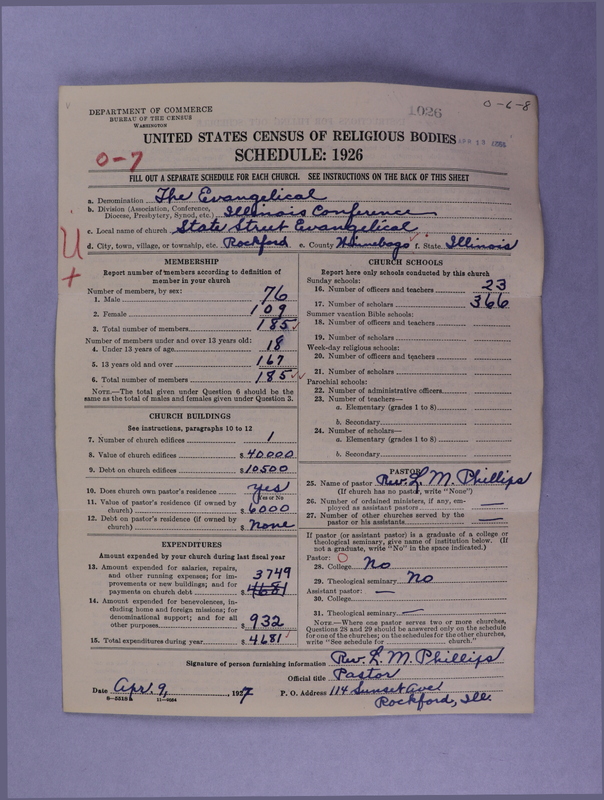 DEPARTMENT OF COMMERCE
BUREAU OF THE CENSUS
WASHINGTON
1026
0-6-8
UNITED STATES CENSUS OF RELIGIOUS BODIES
SCHEDULE: 1926
0-7
FILL OUT A SEPARATE SCHEDULE FOR EACH CHURCH. SEE INSTRUCTIONS ON THE BACK OF THIS SHEET
a. Denomination The Evangelical
b. Division (Association, Conference, Diocese, Presbytery, Synod, etc.) Illinois Conference
c. Local name of church State Street Evangelical
d. City, town, village, or township, etc. Rockford e. County Winnebago f. State Illinois
MEMBERSHIP
Report number of members according to definition of
member in your church
Number of members, by sex:
1. Male 76
2. Female 109
3. Total number of members 185
Number of members under and over 13 years old:
4. Under 13 years of age 18
5. 13 years old and over 167
6. Total number of members 185
NOTE.—The total given under Question 6 should be the
same as the total of males and females given under Question 3.
CHURCH BUILDINGS
See instructions, paragraphs 10 to 12
7. Number of church edifices 1
8. Value of church edifices $ 40000
9. Debt on church edifices $ 10500
10. Does church own pastor's residence yes
(Yes or No)
11. Value of pastor's residence (if owned by
church) $ 6000
12. Debt on pastor's residence (if owned by
church) $ none
EXPENDITURES
Amount expended by your church during last fiscal year
13. Amount expended for salaries, repairs,
and other running expenses; for im-
provements or new buildings; and for
payments on church debt $ 3749 4681
14. Amount expended for benevolences, in-
cluding home and foreign missions; for
denominational support; and for all
other purposes $ 932
15. Total expenditures during year $ 4681
CHURCH SCHOOLS
Report here only schools conducted by this church
Sunday schools:
16. Number of officers and teachers 23
17. Number of scholars 366
Summer vacation Bible schools:
18. Number of officers and teachers
19. Number of scholars
Week-day religious schools:
20. Number of officers and teachers
21. Number of scholars
Parochial schools:
22. Number of administrative officers
23. Number of teachers—
a. Elementary (grades 1 to 8)
b. Secondary
24. Number of scholars—
a. Elementary (grades 1 to 8)
b. Secondary
PASTOR
25. Name of pastor Rev. L. M. Phillips
(If church has no pastor, write "None")
26. Number of ordained ministers, if any, em-
ployed as assistant pastors —
27. Number of other churches served by the
pastor or his assistants —
If pastor (or assistant pastor) is a graduate of a college or
theological seminary, give name of institution below. (If
not a graduate, write "No" in the space indicated.)
Pastor:
28. College No
29. Theological seminary No
Assistant pastor: —
30. College
31. Theological seminary —
NOTE.—Where one pastor serves two or more churches,
Questions 28 and 29 should be answered only on the schedule
for one of the churches; on the schedules for the other churches,
write "See schedule for church."
Signature of person furnishing information Rev. L. M. Phillips
Official title Pastor
Date Apr. 9, 1927 P. O. Address 114 Sunset Ave
Rockford, Ill.